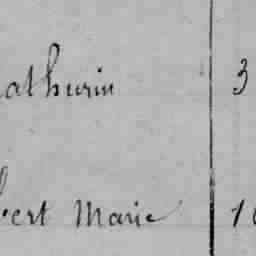 athurin 3
bert Marie 10